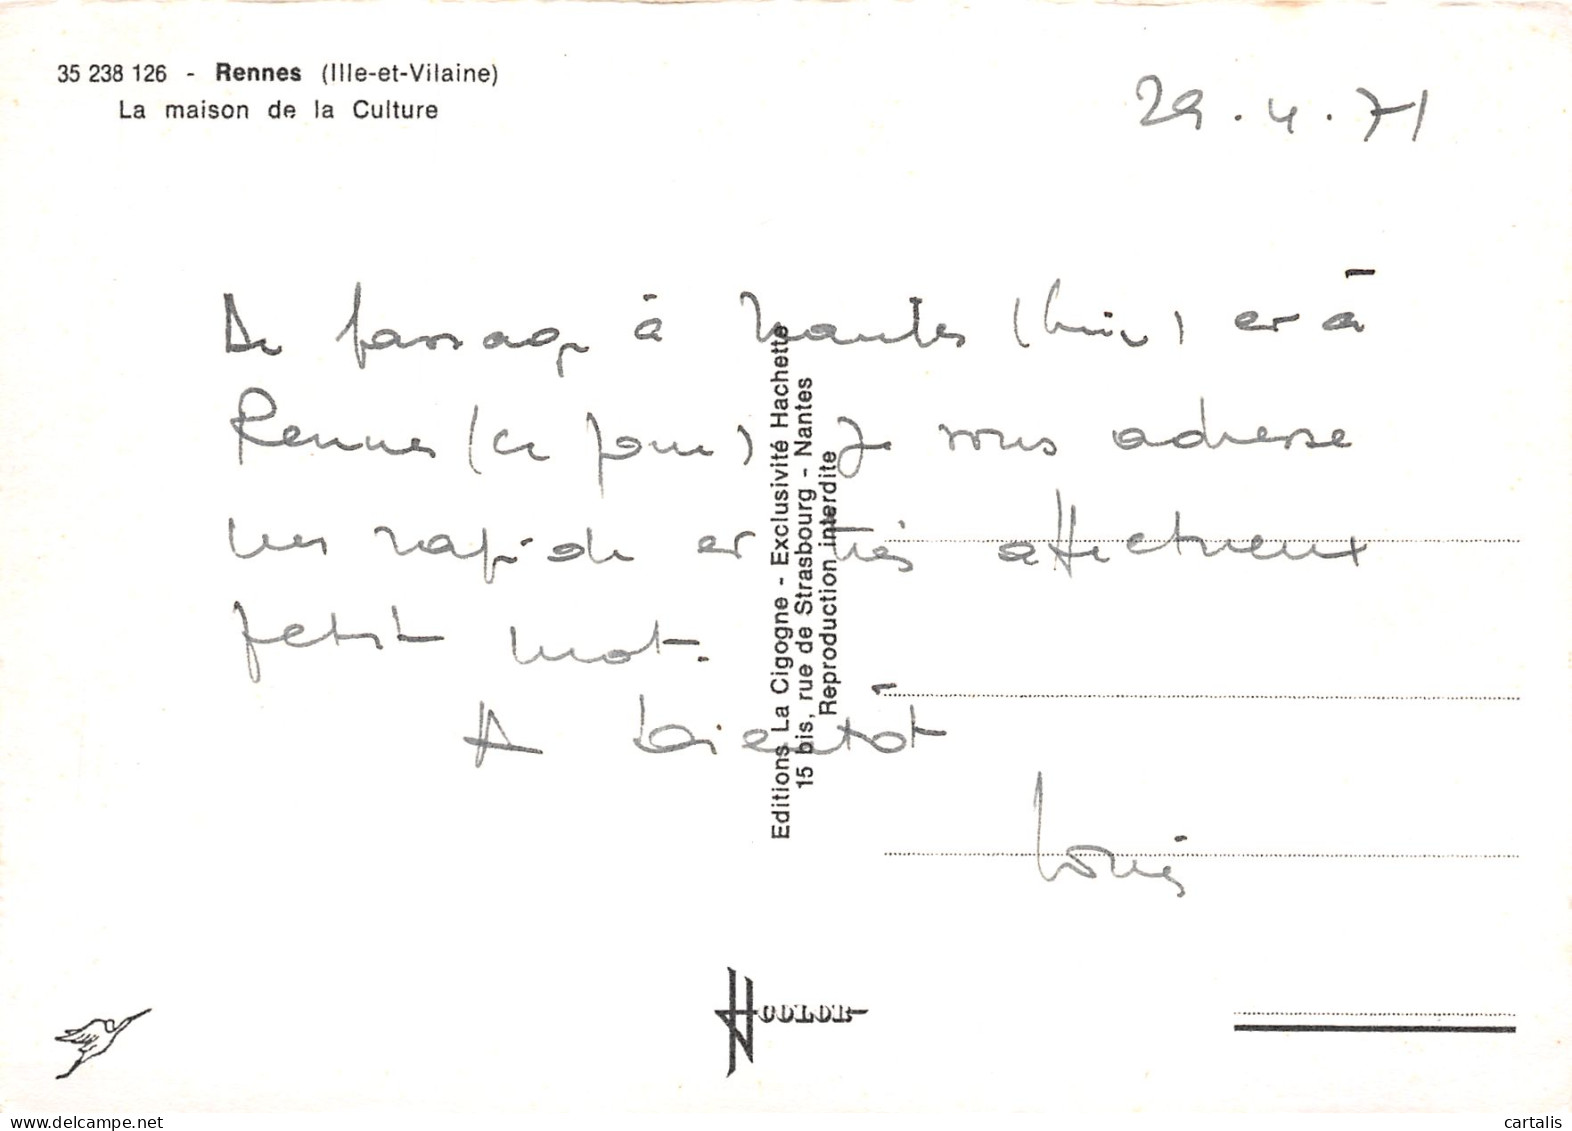 35 238 126 - Rennes (Ille-et-Vilaine)
La maison de la Culture
29.4.71
De passage à Nantes (hier) et à
Rennes (ce jour) je vous adresse
un rapide et très affectueux
petit mot.
A bientôt
Louis
Editions La Cigogne - Exclusivité Hachette
15 bis, rue de Strasbourg - Nantes
Reproduction interdite
COLOR
cartalis